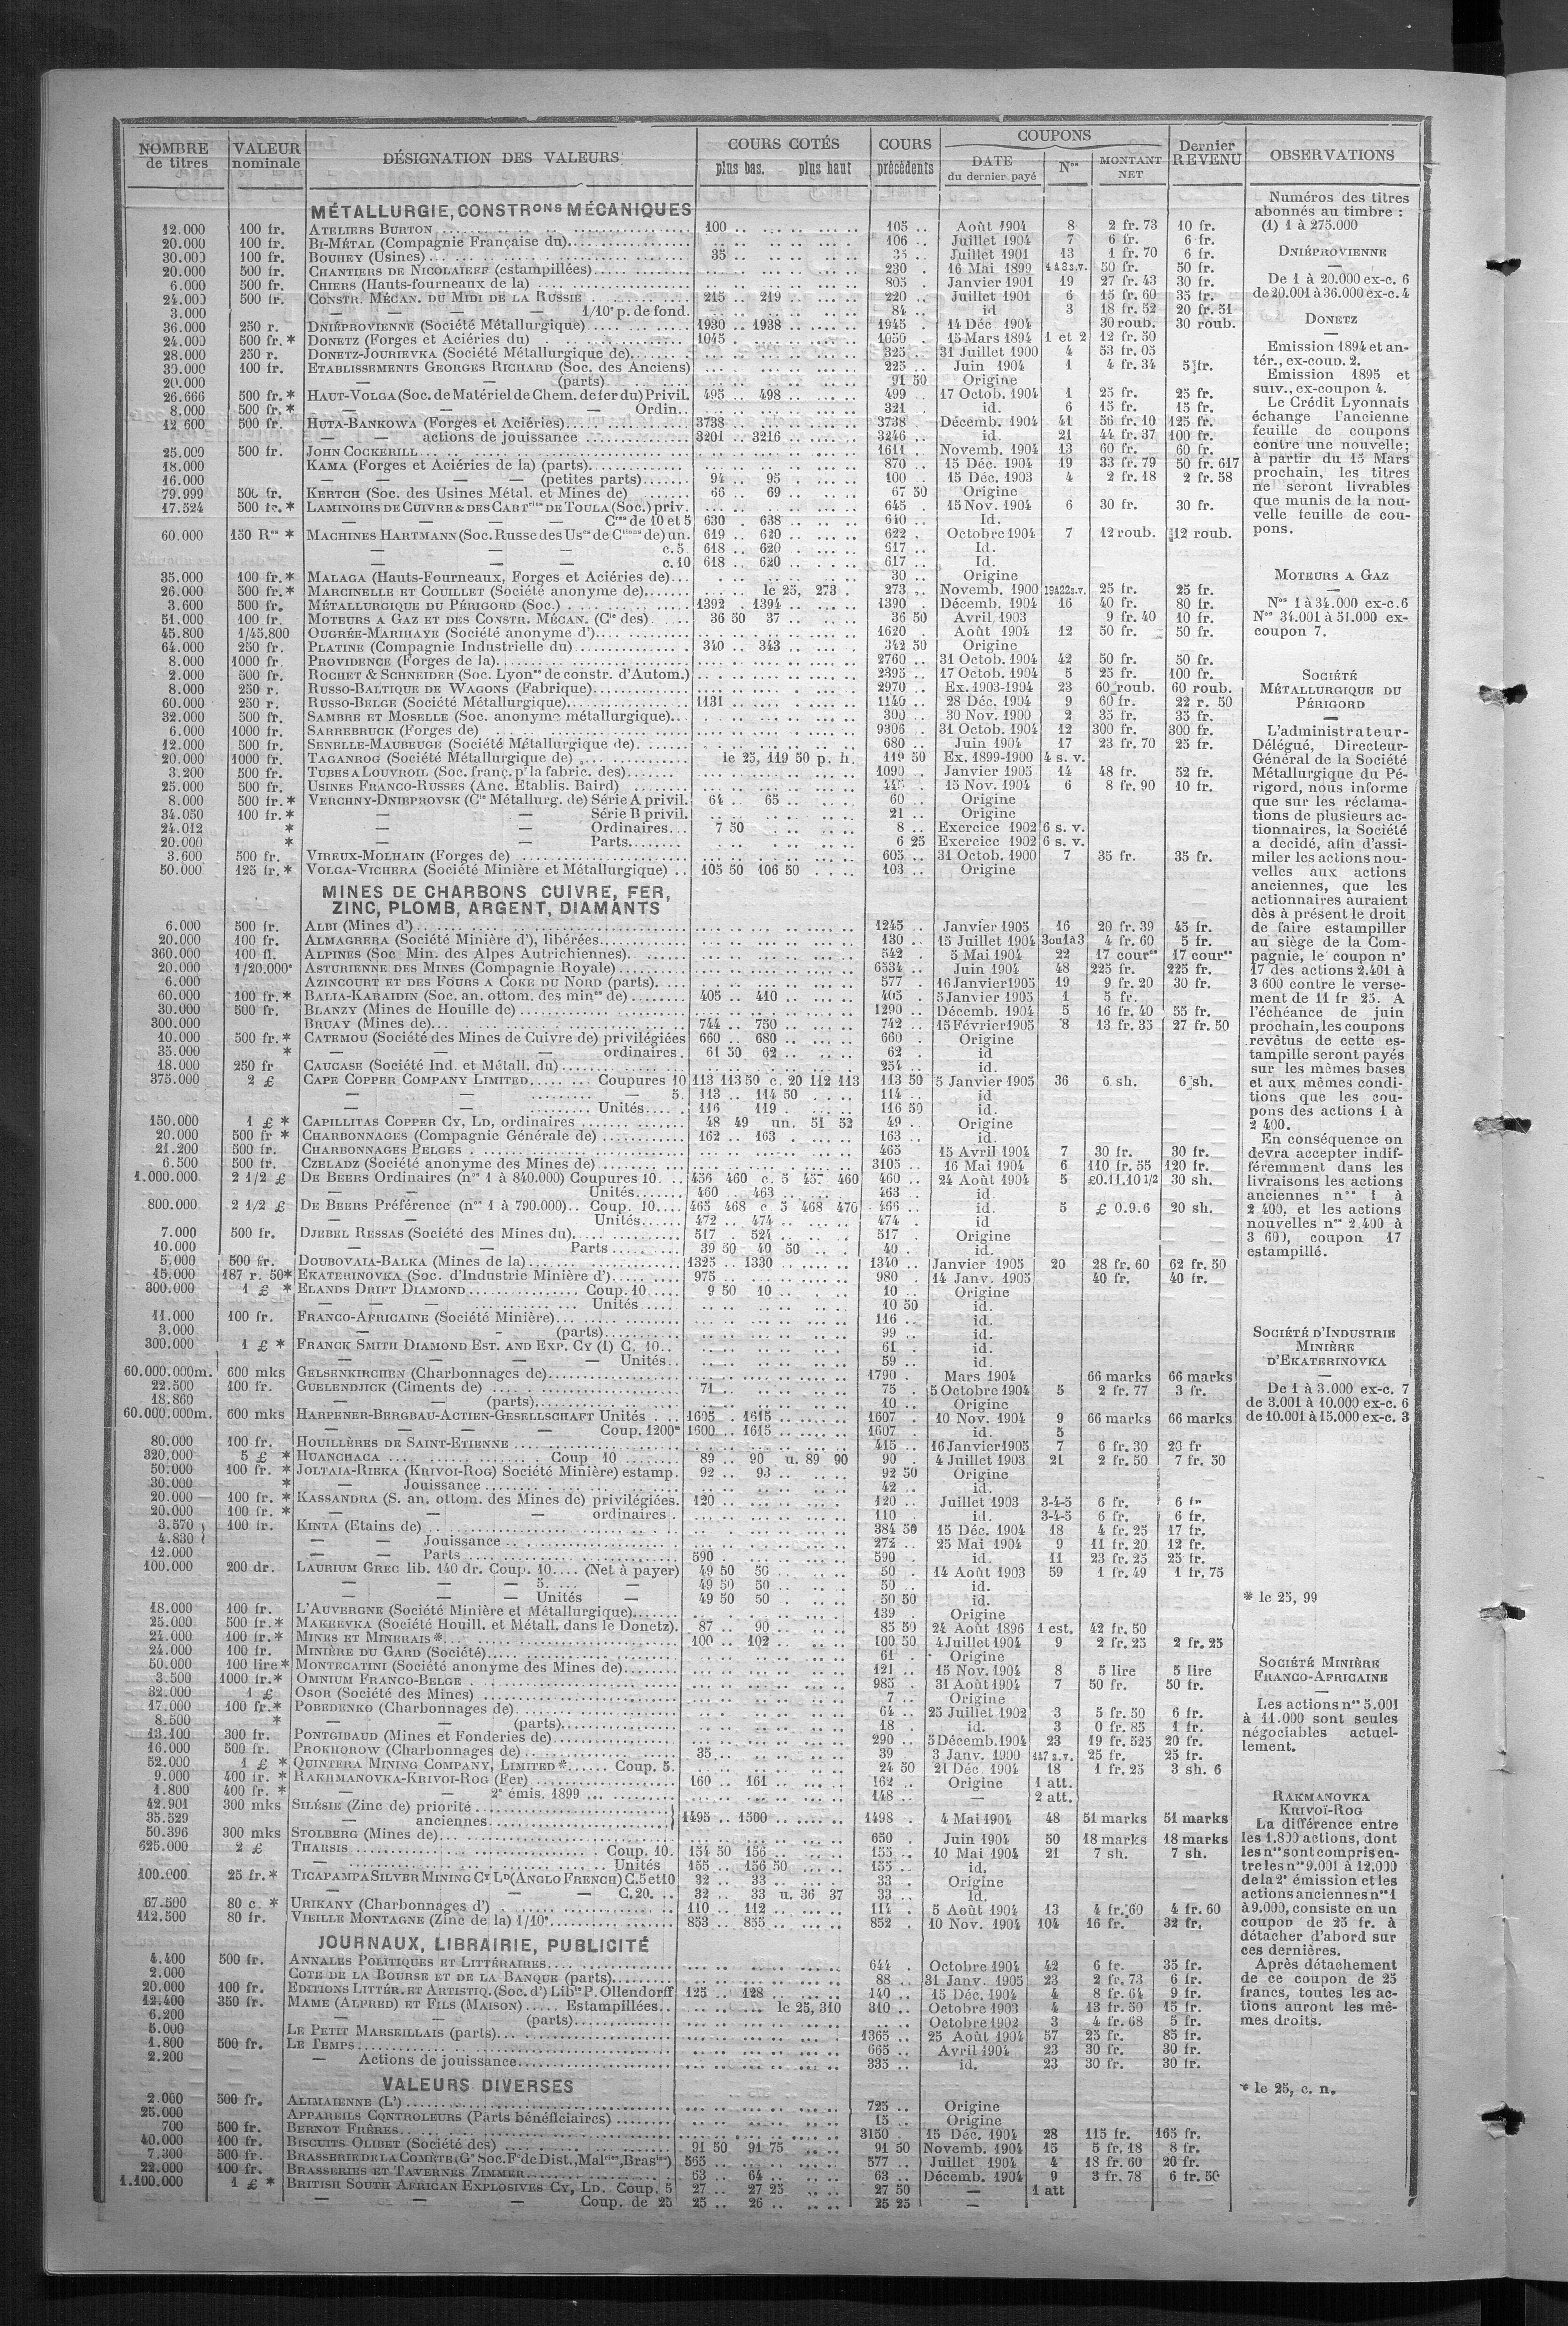 NOMBRE de titres | VALEUR nominale | DÉSIGNATION DES VALEURS | COURS COTÉS plus bas. plus haut | COURS précédents | COUPONS DATE du dernier payé | Nos | MONTANT NET | Dernier REVENU | OBSERVATIONS
MÉTALLURGIE, CONSTRons MÉCANIQUES
12.000 100 fr. ATELIERS BURTON 100 .. 105 .. Août 1904 8 2 fr. 73 10 fr.
20.000 100 fr. BI-MÉTAL (Compagnie Française du) 106 .. Juillet 1904 7 6 fr. 6 fr.
30.000 100 fr. BOUHEY (Usines) 35 .. Juillet 1901 13 1 fr. 70 6 fr.
20.000 500 fr. CHANTIERS DE NICOLAIEFF (estampillées) 230 . 16 Mai 1899 50 fr. 50 fr.
6.000 500 fr. CHIERS (Hauts-fourneaux de la) 805 . Janvier 1901 19 27 fr. 43 30 fr.
24.000 500 fr. CONSTR. MÉCAN. DU MIDI DE LA RUSSIE 215 .. 219 .. 220 .. Juillet 1901 6 15 fr. 60 35 fr.
3.000 — — — — 1/10e p. de fond. 84 .. id 3 18 fr. 52 20 fr. 51
36.000 250 r. DNIÉPROVIENNE (Société Métallurgique) 1930 .. 1938 .. 1945 . 14 Déc. 1904 30 roub. 30 roub.
24.000 500 fr. * DONETZ (Forges et Aciéries du) 1045 . 1050 .. 15 Mars 1894 1 et 2 12 fr. 50
28.000 250 r. DONETZ-JOURIEVKA (Société Métallurgique de) 325 31 Juillet 1900 4 53 fr. 05
30.000 100 fr. ETABLISSEMENTS GEORGES RICHARD (Soc. des Anciens) 225 .. Juin 1904 1 4 fr. 34 5 fr.
20.000 — — (parts) 91 50 Origine
26.666 500 fr. * HAUT-VOLGA (Soc. de Matériel de Chem. de fer du) Privil. 495 .. 498 .. 499 .. 17 Octob. 1904 1 25 fr. 25 fr.
8.000 500 fr. * — — — Ordin.. 321 . id. 6 15 fr. 15 fr.
12 600 500 fr. HUTA-BANKOWA (Forges et Aciéries) 3738 3738 Décemb. 1904 41 56 fr. 10 125 fr.
— — actions de jouissance 3201 .. 3216 .. 3246 .. id. 21 44 fr. 37 100 fr.
25.000 500 fr. JOHN COCKERILL 1611 .. Novemb. 1904 13 60 fr. 60 fr.
18.000 KAMA (Forges et Aciéries de la) (parts) 870 .. 15 Déc. 1904 19 33 fr. 79 50 fr. 617
16.000 — — — — (petites parts) 94 .. 95 . 100 .. 15 Déc. 1903 4 2 fr. 18 2 fr. 58
79.999 500 fr. KERTCH (Soc. des Usines Métal. et Mines de) 66 .. 69 .. 67 50 Origine
17.524 500 fr. * LAMINOIRS DE CUIVRE & DES CARTries DE TOULA (Soc.) priv. 645 . 15 Nov. 1904 6 30 fr. 30 fr.
— — — — Cres de 10 et 5 630 . 638 .. 640 .. Id.
60.000 150 Res * MACHINES HARTMANN (Soc. Russe des Uses de Ctions de) un. 619 .. 620 .. 622 . Octobre 1904 7 12 roub. 12 roub.
— — — c. 5 618 .. 620 . 617 .. Id.
— — — c. 10 618 .. 620 . 617 .. Id.
35.000 100 fr. * MALAGA (Hauts-Fourneaux, Forges et Aciéries de) 30 .. Origine
26.000 500 fr. * MARCINELLE ET COUILLET (Société anonyme de) le 25, 273 . 273 .. Novemb. 1900 19à22s.v. 25 fr. 25 fr.
3.600 500 fr. MÉTALLURGIQUE DU PÉRIGORD (Soc.) 1392 .. 1394 .. 1390 . Décemb. 1904 16 40 fr. 80 fr.
51.000 100 fr. MOTEURS A GAZ ET DES CONSTR. MÉCAN. (Cie des) 36 50 37 .. 36 50 Avril 1903 9 fr. 40 10 fr.
45.800 1/45.800 OUGRÉE-MARIHAYE (Société anonyme d') 1620 . Août 1904 12 50 fr. 50 fr.
64.000 250 fr. PLATINE (Compagnie Industrielle du) 340 .. 343 .. 342 50 Origine
8.000 1000 fr. PROVIDENCE (Forges de la) 2760 .. 31 Octob. 1904 42 50 fr. 50 fr.
2.000 500 fr. ROCHET & SCHNEIDER (Soc. Lyonse de constr. d'Autom.) 2395 .. 17 Octob. 1904 5 25 fr. 100 fr.
8.000 250 r. RUSSO-BALTIQUE DE WAGONS (Fabrique) 2970 .. Ex. 1903-1904 23 60 roub. 60 roub.
60.000 250 r. RUSSO-BELGE (Société Métallurgique) 1131 .. 1140 .. 28 Déc. 1904 9 60 fr. 22 r. 50
32.000 500 fr. SAMBRE ET MOSELLE (Soc. anonyme métallurgique) 300 .. 30 Nov. 1900 2 35 fr. 35 fr.
6.000 1000 fr. SARREBRUCK (Forges de) 9306 .. 31 Octob. 1904 12 300 fr. 300 fr.
12.000 500 fr. SENELLE-MAUBEUGE (Société Métallurgique de) 680 .. Juin 1904 17 23 fr. 70 25 fr.
20.000 1000 fr. TAGANROG (Société Métallurgique de) le 25, 119 50 p. h. 119 50 Ex. 1899-1900 4 s. v.
3.200 500 fr. TUBES A LOUVROIL (Soc. franç. pr la fabric. des) 1090 .. Janvier 1905 14 48 fr. 52 fr.
25.000 500 fr. USINES FRANCO-RUSSES (Anc. Etablis. Baird) 15 Nov. 1904 6 8 fr. 90 10 fr.
8.000 500 fr. * VERCHNY-DNIEPROVSK (Cie Métallurg. de) Série A privil. 64 .. 65 .. 60 .. Origine
34.050 100 fr. * — — Série B privil. 21 .. Origine
24.012 * — — Ordinaires 7 50 8 .. Exercice 1902 6 s. v.
20.000 * — — Parts 6 25 Exercice 1902 6 s. v.
3.600 500 fr. VIREUX-MOLHAIN (Forges de) 605 .. 31 Octob. 1900 7 35 fr. 35 fr.
50.000 125 fr. * VOLGA-VICHERA (Société Minière et Métallurgique) 105 50 106 50 103 .. Origine
MINES DE CHARBONS CUIVRE, FER,
ZINC, PLOMB, ARGENT, DIAMANTS
6.000 500 fr. ALBI (Mines d') 1245 Janvier 1905 16 20 fr. 39 45 fr.
20.000 100 fr. ALMAGRERA (Société Minière d'), libérées 130 . 15 Juillet 1904 3ou1à3 4 fr. 60 5 fr.
360.000 100 fl. ALPINES (Soc Min. des Alpes Autrichiennes) 542 . 5 Mai 1904 22 17 couresⁿ 17 cour
20.000 1/20.000e ASTURIENNE DES MINES (Compagnie Royale) 6534 .. Juin 1904 48 225 fr. 225 fr.
6.000 AZINCOURT ET DES FOURS A COKE DU NORD (parts) 577 . 16 Janvier 1905 19 9 fr. 20 30 fr.
60.000 100 fr. * BALIA-KARAIDIN (Soc. an. ottom. des mines de) 405 .. 410 .. 405 . 5 Janvier 1905 1 5 fr.
30.000 500 fr. BLANZY (Mines de Houille de) 1290 .. Décemb. 1904 5 16 fr. 40 55 fr.
300.000 BRUAY (Mines de) 744 .. 750 .. 742 .. 15 Février 1905 8 13 fr. 35 27 fr. 50
10.000 500 fr. * CATEMOU (Société des Mines de Cuivre de) privilégiées 660 .. 680 .. 660 . Origine
35.000 * — — — ordinaires . 61 50 62 .. 62 . id
18.000 250 fr CAUCASE (Société Ind. et Métall. du) 254 .. id.
375.000 2 £ CAPE COPPER COMPANY LIMITED Coupures 10 113 113 50 c. 20 112 113 113 50 5 Janvier 1905 36 6 sh. 6 sh.
— — — 5. 113 .. 114 50 114 .. id
— — Unités 116 119 . 116 50 id.
150.000 1 £ * CAPILLITAS COPPER CY, LD, ordinaires 48 49 un. 51 52 49 . Origine
20.000 500 fr * CHARBONNAGES (Compagnie Générale de) 162 .. 163 . 163 .. id.
21.200 500 fr. CHARBONNAGES BELGES 465 15 Avril 1904 7 30 fr. 30 fr.
6.500 500 fr. CZELADZ (Société anonyme des Mines de) 3105 .. 16 Mai 1904 6 110 fr. 55 120 fr.
1.000.000 2 1/2 £ DE BEERS Ordinaires (nos 1 à 840.000) Coupures 10. 456 460 c. 5 457 460 460 .. 24 Août 1904 5 £0.11.10 1/2 30 sh.
— — Unités 460 .. 463 .. 463 .. id.
800.000 2 1/2 £ DE BEERS Préférence (nos 1 à 790.000).. Coup. 10 465 468 c. 5 468 470 466 .. id. 5 £ 0.9.6 20 sh.
— — Unités 472 .. 474 .. 474 . id
7.000 500 fr. DJEBEL RESSAS (Société des Mines du) 517 . 524 .. 517 . Origine
10.000 — — Parts 39 50 40 50 40 . id.
5.000 500 fr. DOUBOVAIA-BALKA (Mines de la) 1325 .. 1330 .. 1340 .. Janvier 1905 20 28 fr. 60 62 fr. 50
15.000 187 r. 50* EKATERINOVKA (Soc. d'Industrie Minière d') 975 .. 980 . 14 Janv. 1905 40 fr. 40 fr.
300.000 1 £ * ELANDS DRIFT DIAMOND Coup. 10 9 50 10 .. 10 .. Origine
— — — Unités 10 50 id.
11.000 100 fr. FRANCO-AFRICAINE (Société Minière) 116 .. id.
3.000 — - (parts) 99 .. id.
300.000 1 £ * FRANCK SMITH DIAMOND EST. AND EXP. CY (1) C. 10.. 61 . id.
— — — — Unités.. 59 .. id.
60.000.000m. 600 mks GELSENKIRCHEN (Charbonnages de) 1790 . Mars 1904 66 marks 66 marks
22.500 100 fr. GUELENDJICK (Ciments de) 71 .. 75 . 5 Octobre 1904 5 2 fr. 77 3 fr.
18.860 — — (parts) 10 .. Origine
60.000.000m. 600 mks HARPENER-BERGBAU-ACTIEN-GESELLSCHAFT Unités 1605 . 1615 .. 1607 . 10 Nov. 1904 9 66 marks 66 marks
— — — — Coup. 1200m 1600 .. 1615 .. 1607 . id. 5
80.000 100 fr. HOUILLÈRES DE SAINT-ETIENNE 415 .. 16 Janvier 1905 7 6 fr. 30 20 fr
320.000 5 £ * HUANCHACA Coup 10 89 .. 90 u. 89 90 90 . 4 Juillet 1903 21 2 fr. 50 7 fr. 50
50.000 100 fr. * JOLTAIA-RIEKA (KRIVOI-ROG) Société Minière) estamp. 92 .. 93 .. 92 50 Origine
30.000 * — Jouissance 42 .. id.
20.000 100 fr. * KASSANDRA (S. an. ottom. des Mines de) privilégiées. 120 .. 120 .. Juillet 1903 3-4-5 6 fr. 6 fr
20.000 100 fr. * — — — ordinaires . 110 . id. 3-4-5 6 fr. 6 fr.
3.570 100 fr. KINTA (Etains de) 384 50 15 Déc. 1904 18 4 fr. 25 17 fr.
4.830 — — Jouissance 272 .. 25 Mai 1904 9 11 fr. 20 12 fr.
12.000 — — Parts 590 . 590 . id. 11 23 fr. 25 25 fr.
100.000 200 dr. LAURIUM GREC lib. 140 dr. Coup. 10.... (Net à payer) 49 50 50 .. 50 . 14 Août 1903 59 1 fr. 49 1 fr. 75
— — — 5. — 49 50 50 .. 50 .. id.
— — — Unités — 49 50 50 . 50 50 id.
18.000 100 fr. L'AUVERGNE (Société Minière et Métallurgique) 139 . Origine
25.000 500 fr. * MAKEEVKA (Société Houill. et Métall. dans le Donetz). 87 .. 90 .. 85 50 24 Août 1896 1 est. 42 fr. 50
24.000 100 fr. * MINES ET MINERAIS * 100 .. 102 .. 100 50 4 Juillet 1904 9 2 fr. 25 2 fr. 25
24.000 100 fr. MINIÈRE DU GARD (Société) 61 . Origine
50.000 100 lire * MONTECATINI (Société anonyme des Mines de) 121 .. 15 Nov. 1904 8 5 lire 5 lire
3.500 1000 fr. * OMNIUM FRANCO-BELGE 985 . 31 Août 1904 7 50 fr. 50 fr.
32.000 1 £ OSOR (Société des Mines) 7 .. Origine
17.000 100 fr. * POBEDENKO (Charbonnages de) 64 .. 25 Juillet 1902 3 5 fr. 50 6 fr.
8.500 * — — (parts) 18 . id. 3 0 fr. 85 1 fr.
13.100 300 fr. PONTGIBAUD (Mines et Fonderies de) 290 .. 5 Décemb. 1904 23 19 fr. 525 20 fr.
16.000 500 fr. PROKHOROW (Charbonnages de) 35 .. 39 3 Janv. 1900 4à7 s.v. 25 fr. 25 fr.
52.000 1 £ * QUINTERA MINING COMPANY, LIMITED * Coup. 5. 24 50 21 Déc. 1904 18 1 fr. 25 3 sh. 6
9.000 400 fr. * RAKHMANOVKA-KRIVOI-ROG (Fer) 160 .. 161 .. 162 .. Origine 1 att.
1.800 400 fr. * — — 2e émis. 1899 148 .. — 2 att.
42.901 300 mks SILÉSIE (Zinc de) priorité
35.529 — anciennes 1495 .. 1500 .. 1498 . 4 Mai 1904 48 51 marks 51 marks
50.396 300 mks STOLBERG (Mines de) 650 . Juin 1904 50 18 marks 18 marks
625.000 2 £ THARSIS Coup. 10. 154 50 156 .. 155 .. 10 Mai 1904 21 7 sh. 7 sh.
— Unités 155 .. 156 50 155 .. id.
100.000 25 fr. * TICAPAMPA SILVER MINING CY LD (ANGLO FRENCH) C. 5 et 10 32 .. 33 .. 33 . Origine
— — — C. 20. .. 32 .. 33 u. 36 37 33 .. Id.
67.500 80 c. * URIKANY (Charbonnages d') 110 .. 112 .. 114 . 5 Août 1904 13 4 fr. 60 4 fr. 60
112.500 80 fr. VIEILLE MONTAGNE (Zinc de la) 1/10e 853 .. 855 .. 852 . 10 Nov. 1904 104 16 fr. 32 fr.
JOURNAUX, LIBRAIRIE, PUBLICITÉ
4.400 500 fr. ANNALES POLITIQUES ET LITTÉRAIRES 644 . Octobre 1904 42 6 fr. 35 fr.
2.000 COTE DE LA BOURSE ET DE LA BANQUE (parts) 88 .. 31 Janv. 1905 23 2 fr. 73 6 fr.
20.000 100 fr. EDITIONS LITTÉR. ET ARTISTIQ. (Soc. d') Librie P. Ollendorff 125 .. 128 .. 140 .. 15 Déc. 1904 4 8 fr. 64 9 fr.
12.400 350 fr. MAME (ALFRED) ET FILS (MAISON) Estampillées.. le 25, 310 310 .. Octobre 1903 4 13 fr. 50 15 fr.
6.200 — — (parts) Octobre 1902 3 4 fr. 68 5 fr.
5.000 LE PETIT MARSEILLAIS (parts) 1365 .. 25 Août 1904 57 25 fr. 85 fr.
1.800 500 fr. LE TEMPS 665 .. Avril 1904 23 30 fr. 30 fr.
2.200 — Actions de jouissance 335 .. id. 23 30 fr. 30 fr.
VALEURS DIVERSES
2.000 500 fr. ALIMAIENNE (L') 725 .. Origine
25.000 APPAREILS CONTROLEURS (Parts bénéficiaires) 15 .. Origine
700 500 fr. BERNOT FRÈRES 3150 . 15 Déc. 1904 28 115 fr. 165 fr.
40.000 100 fr. BISCUITS OLIBET (Société des) 91 50 91 75 91 50 Novemb. 1904 15 5 fr. 18 8 fr.
7.300 500 fr. BRASSERIE DE LA COMÈTE (Gde Soc. Fse de Dist., Malries, Brasries) 565 577 .. Juillet 1904 4 18 fr. 60 20 fr.
22.000 100 fr. BRASSERIES ET TAVERNES ZIMMER 63 .. 64 .. 63 .. Décemb. 1904 9 3 fr. 78 6 fr. 50
1.100.000 1 £ * BRITISH SOUTH AFRICAN EXPLOSIVES CY, LD. Coup. 5 27 .. 27 25 27 50 — 1 att
— — — Coup. de 25 25 .. 26 .. 25 25 —
Numéros des titres
abonnés au timbre :
(1) 1 à 275.000
DNIÉPROVIENNE
De 1 à 20.000 ex-c. 6
de 20.001 à 36.000 ex-c. 4
DONETZ
Emission 1894 et an-
tér., ex-coup. 2.
Emission 1895 et
suiv., ex-coupon 4.
Le Crédit Lyonnais
échange l'ancienne
feuille de coupons
contre une nouvelle;
à partir du 15 Mars
prochain, les titres
ne seront livrables
que munis de la nou-
velle feuille de cou-
pons.
MOTEURS A GAZ
Nos 1 à 34.000 ex-c. 6
Nos 34.001 à 51.000 ex-
coupon 7.
SOCIÉTÉ
MÉTALLURGIQUE DU
PÉRIGORD
L'administrateur-
Délégué, Directeur-
Général de la Société
Métallurgique du Pé-
rigord, nous informe
que sur les réclama-
tions de plusieurs ac-
tionnaires, la Société
a décidé, afin d'assi-
miler les actions nou-
velles aux actions
anciennes, que les
actionnaires auraient
dès à présent le droit
de faire estampiller
au siège de la Com-
pagnie, le coupon n°
17 des actions 2.401 à
3 600 contre le verse-
ment de 11 fr 25. A
l'échéance de juin
prochain, les coupons
revêtus de cette es-
tampille seront payés
sur les mêmes bases
et aux mêmes condi-
tions que les cou-
pons des actions 1 à
2 400.
En conséquence on
devra accepter indif-
féremment dans les
livraisons les actions
anciennes nos 1 à
2 400, et les actions
nouvelles nos 2.400 à
3 600, coupon 17
estampillé.
SOCIÉTÉ D'INDUSTRIE
MINIÈRE
D'EKATERINOVKA
De 1 à 3.000 ex-c. 7
de 3.001 à 10.000 ex-c. 6
de 10.001 à 15.000 ex-c. 3
* le 25, 99
SOCIÉTÉ MINIÈRE
FRANCO-AFRICAINE
Les actions nos 5.001
à 11.000 sont seules
négociables actuel-
lement.
RAKMANOVKA
KRIVOÏ-ROG
La différence entre
les 1.800 actions, dont
les nos sont compris en-
tre les nos 9.001 à 12.000
de la 2e émission et les
actions anciennes nos 1
à 9.000, consiste en un
coupon de 25 fr. à
détacher d'abord sur
ces dernières.
Après détachement
de ce coupon de 25
francs, toutes les ac-
tions auront les mê-
mes droits.
* le 25, c. n.